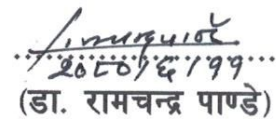 २०८०/६/११
(डा. रामचन्द्र पाण्डे)